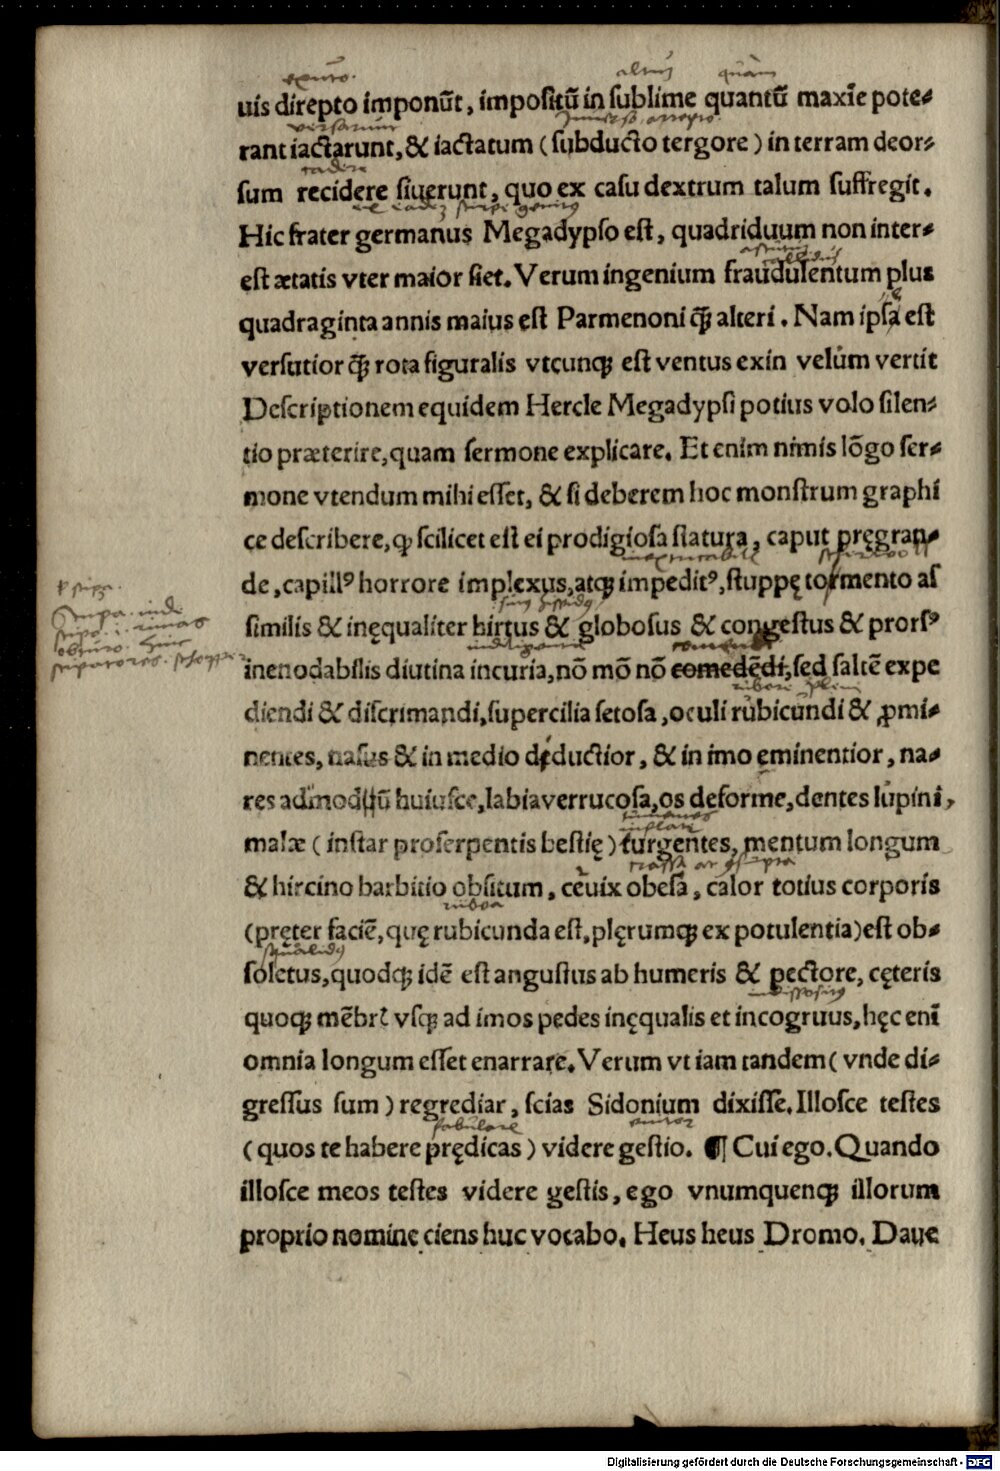 uis direpto imponūt, impositū in sublime quantū maxīe pote⸗
rant iactarunt, & iactatum (subducto tergore) in terram deor⸗
sum recidere siuerunt, quo ex casu dextrum talum suffregit.
Hic frater germanus Megadypso est, quadriduum non inter⸗
est ætatis vter maior siet. Verum ingenium fraudulentum plus
quadraginta annis maius est Parmenoni q̄ꝫ alteri. Nam ipsa est
versutior q̄ꝫ rota figuralis vtcunqꝫ est ventus exin velum vertit
Descriptionem equidem Hercle Megadypsi potius volo silen⸗
tio præterire, quam sermone explicare. Et enim nimis lōgo ser⸗
mone vtendum mihi esset, & si deberem hoc monstrum graphi
ce describere, ꝙ scilicet est ei prodigiosa statura, caput pręgran⸗
de, capillꝰ horrore implexus, atqꝫ impeditꝰ, stuppę tormento as
similis & inęqualiter hirtus & globosus & congestus & prorsꝰ
inenodabilis diutina incuria, nō mō nō comedēdi, sed saltē expe
diendi & discrimandi, supercilia setosa, oculi rubicundi & ꝓmi⸗
nentes, nasus & in medio deductior, & in imo eminentior, na⸗
res admodū huiusce, labia verrucosa, os deforme, dentes lupini,
malæ (instar proserpentis bestię) turgentes, mentum longum
& hircino barbitio obsitum, ceuix obesa, calor totius corporis
(pręter faciē, quę rubicunda est, plęrumqꝫ ex potulentia) est ob⸗
soletus, quodqꝫ idē est angustus ab humeris & pectore, cęteris
quoqꝫ mēbrꝭ vsqꝫ ad imos pedes inęqualis et incōgruus, hęc enī
omnia longum esset enarrare. Verum vt iam tandem (vnde di⸗
gressus sum) regrediar, scias Sidonium dixisse. Illosce testes
(quos te habere prędicas) videre gestio. ¶ Cui ego. Quando
illosce meos testes videre gestis, ego vnumquenqꝫ illorum
proprio nomine ciens huc vocabo. Heus heus Dromo. Daue
Digitalisierung gefördert durch die Deutsche Forschungsgemeinschaft - DFG